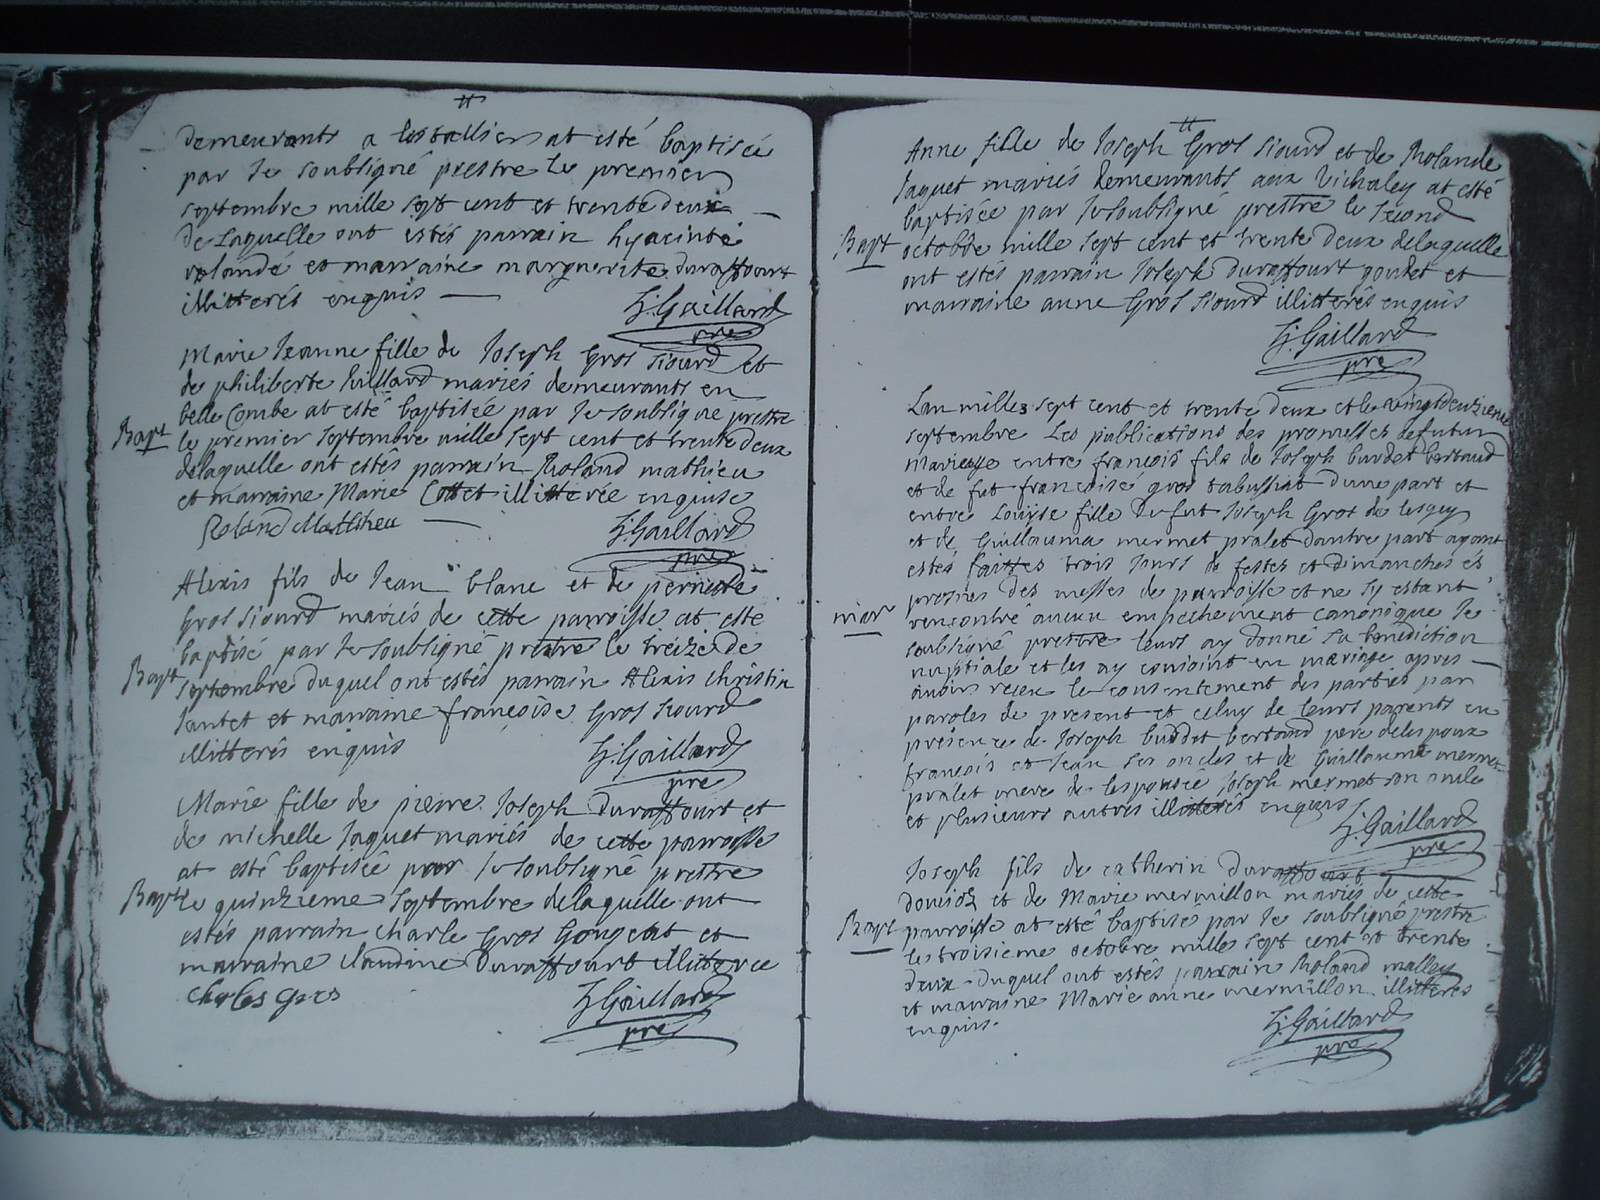 demeurants a les talliers at esté baptisée
par Je soubsigné prestre Le premier
septembre mille sept cent et trente deux
de Laquelle ont estés parrain hyacinte
rolandé et marraine marguerite duraffourt
illitterés enquis
J: Gaillard
pre
Marie Jeanne fille de Joseph Gros Siourd et
de philiberte Vuillard mariés demeurants en
belle Combe at esté baptisée par Je soubsigné prestre
Bapt
le premier septembre mille sept cent et trente deux
delaquelle ont estés parrain Roland mathieu
et marraine Marie Cottet illitterée enquise
Roland Matthieu
J: Gaillard
pre
Alexis fils de Jean blanc et de pernette
Gros Siourd mariés de cette parroisse at esté
baptisé par Je soubsigné prestre le treize de
Bapt
septembre duquel ont estés parrain Alexis Christin
Jantet et marraine françoise Gros Siourd
illitterés enquis
J: Gaillard
pre
Marie fille de pierre Joseph Duraffourt et
de michelle Jaquet mariés de cette parroisse
at esté baptisée par Je soubsigné prestre
Bapt
le quinzieme septembre delaquelle ont
estés parrain Charle Gros Gongeat et
marraine Claudine Duraffourt illitteree
charles gros
J: Gaillard
pre
Anne fille de Joseph Gros Siourd et de Rolande
Jaquet mariés demeurants aux Vichaley at esté
baptisée par Je soubsigné prestre le second
Bapt
octobre mille sept cent et trente deux delaquelle
ont estés parrain Joseph duraffourt goudet et
marraine anne Gros Siourd illitterés enquis
J: Gaillard
pre
Lan milles sept cent et trente deux et le vingtdeuzieme
septembre Les publications des promesses de futur
Mariage entre françois fils de Joseph burdet bertaud
et de fut françoise gros dune part et
entre Louyse fille de fut Joseph Gros de lesquy
et de Guillauma mermet pralet dautre part ayant
estés faittes trois Jours de festes et dimanches és
prosnes des messes de parroisse et ne sy estant
mar
rencontré aucun empechement canonique Je
soubsigné prestre leurs ay donné La benediction
nuptiale et les ay conjoint en mariage apres
avoir receu le consentement des parties par
paroles de present et celuy de leurs parents en
presence de Joseph burdet bertaud pere delespoux
françois et Jean ses oncles et de Guillauma mermet
pralet mere de lespousée Joseph mermet son oncle
et plusieurs autres illitterés enquis
J: Gaillard
pre
Joseph fils de catherin duraffourt
et de Marie mermillon mariés de cette
Bapt
parroisse at esté baptisé par Je soubsigné prestre
le troisieme octobre mille sept cent et trente
deux duquel ont estés parrain Roland malley
et marraine Marie anne mermillon illitterés
enquis.
J: Gaillard
pre